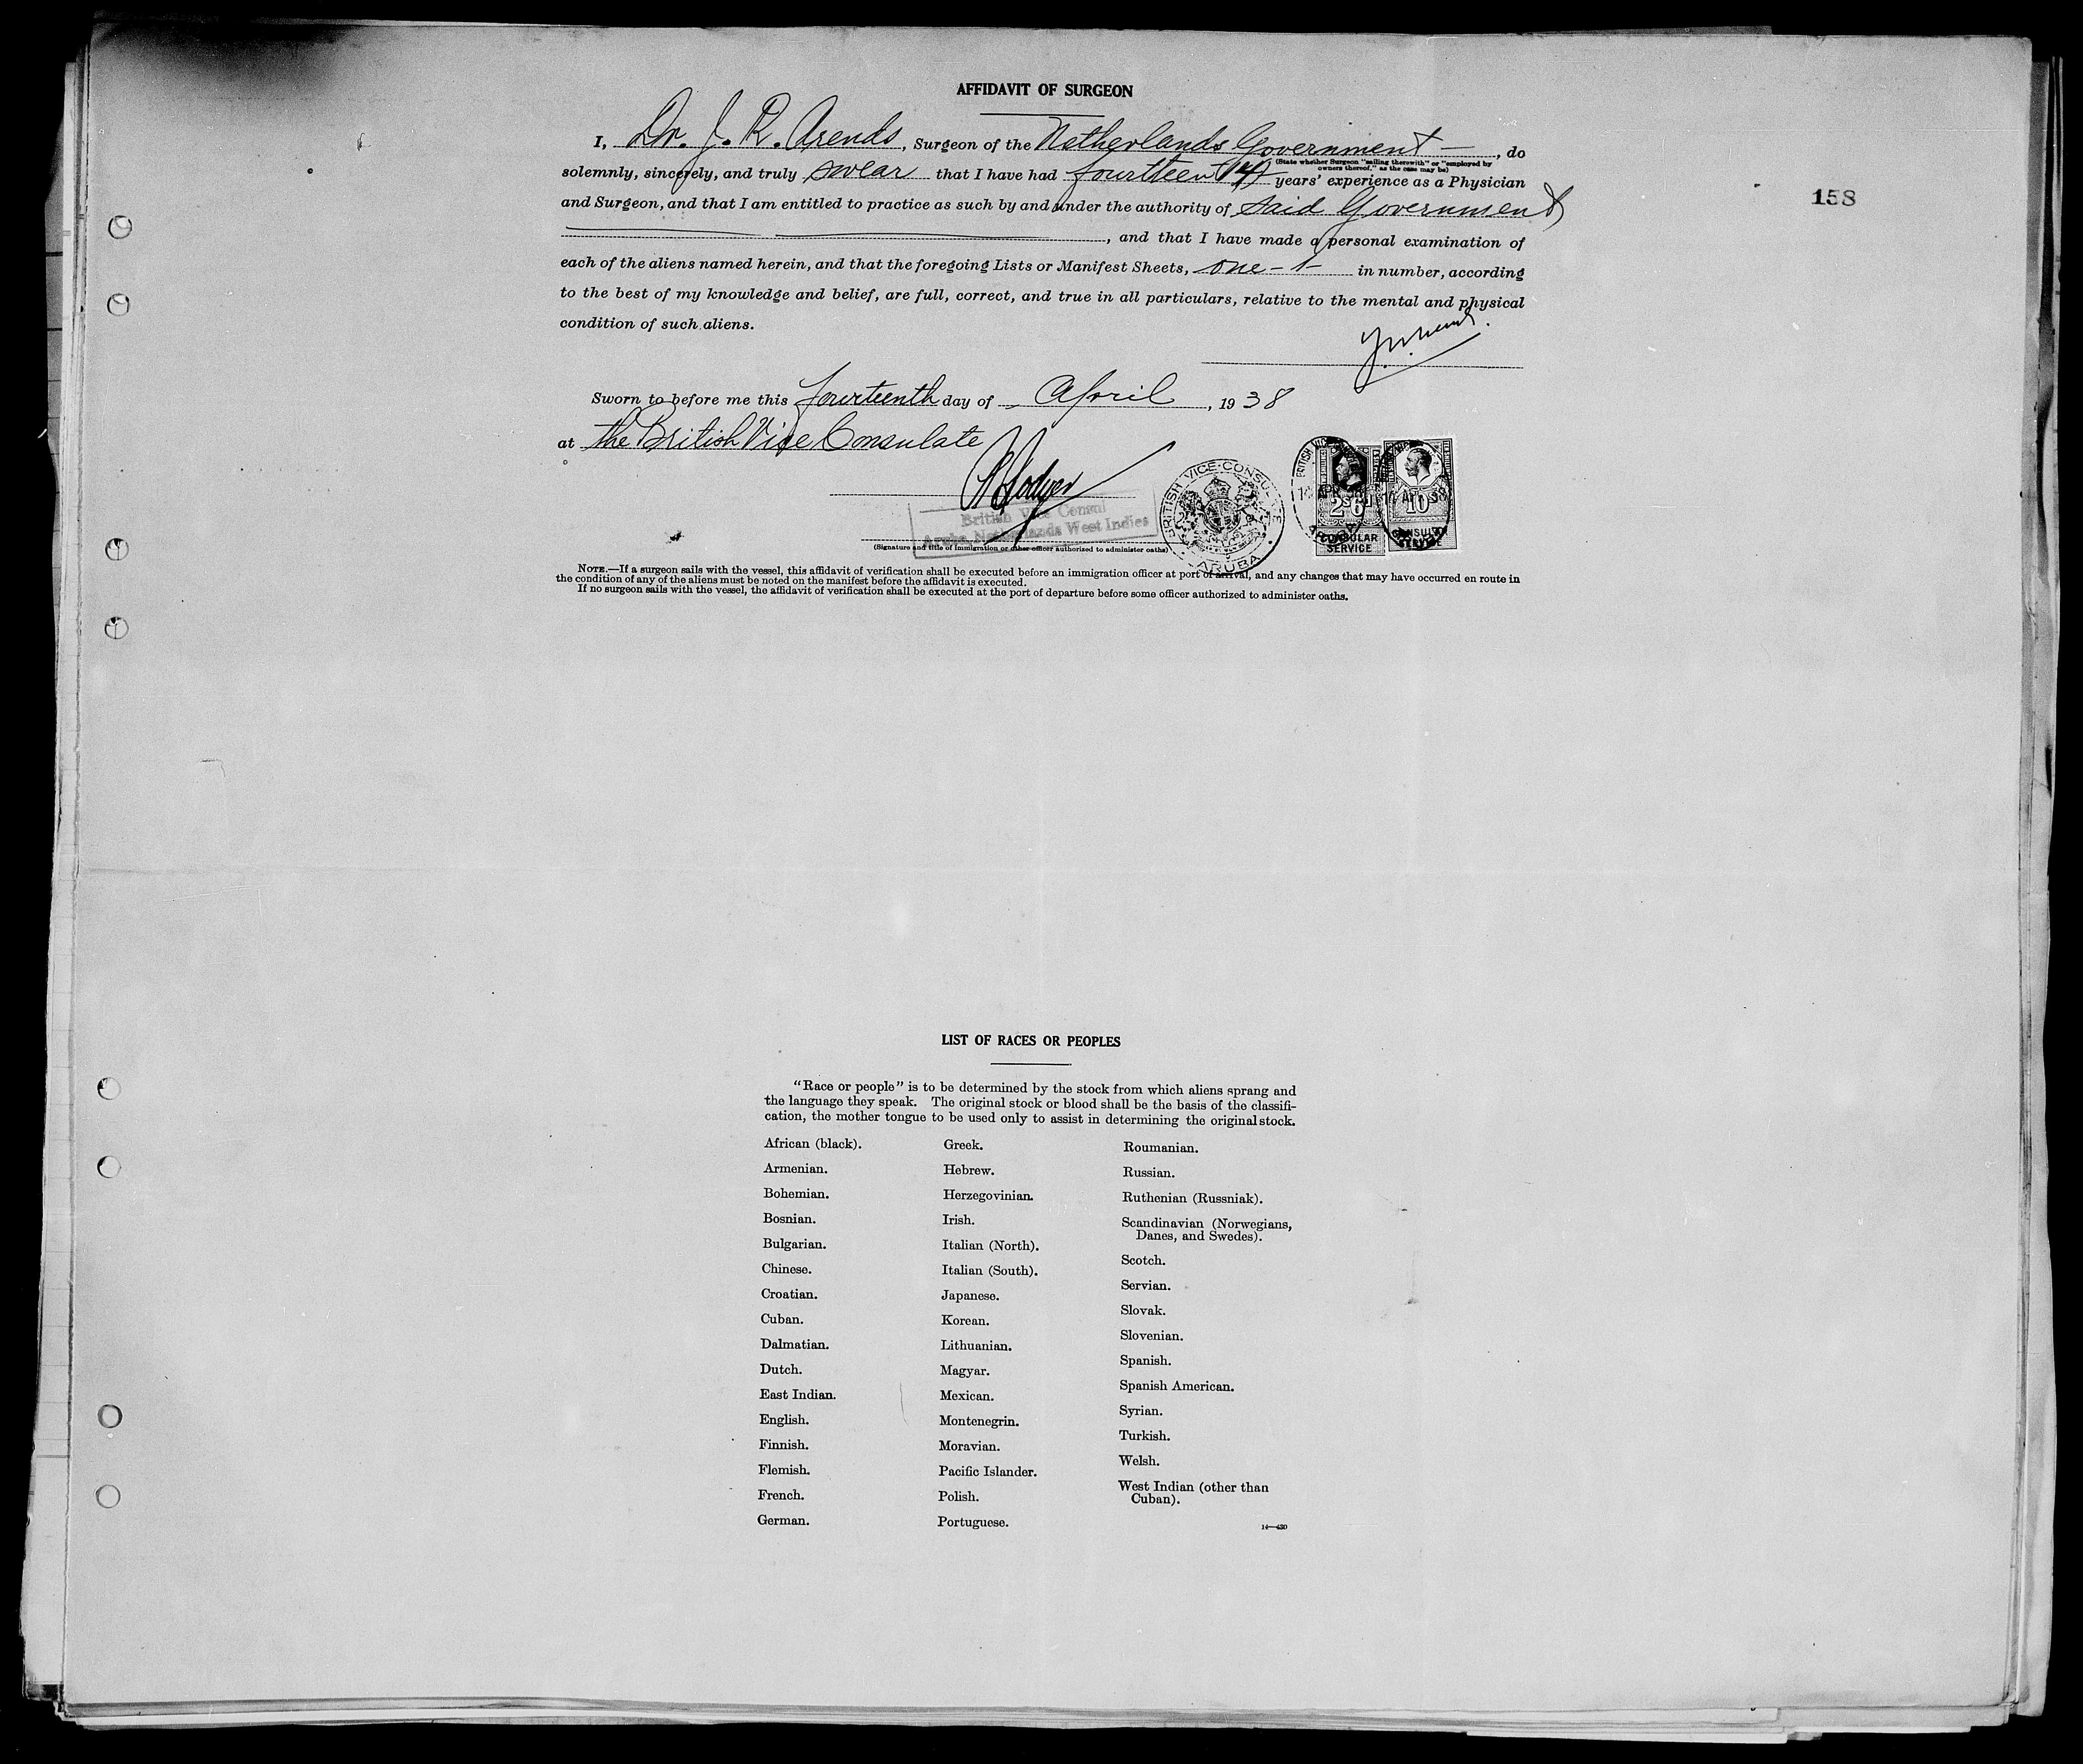 AFFIDAVIT OF SURGEON
158
I, Dr. J. R. Arends, Surgeon of the Netherlands Government —, do
(State whether Surgeon "sailing therewith" or "employed by owners thereof," as the case may be)
solemnly, sincerely, and truly swear that I have had fourtteen (14) years' experience as a Physician
and Surgeon, and that I am entitled to practice as such by and under the authority of said Government
, and that I have made a personal examination of
each of the aliens named herein, and that the foregoing Lists or Manifest Sheets, one - 1 - in number, according
to the best of my knowledge and belief, are full, correct, and true in all particulars, relative to the mental and physical
condition of such aliens.
Sworn to before me this fourteenth day of April, 1938
at the British Vice Consulate
British Vice Consul
Aruba, Netherlands West Indies
(Signature and title of immigration or other officer authorized to administer oaths)
BRITISH VICE-CONSULATE
ARUBA
14 APR 38
2-6
CONSULAR
SERVICE
14 APR 38
10
CONSULAR
SERVICE
NOTE.—If a surgeon sails with the vessel, this affidavit of verification shall be executed before an immigration officer at port of arrival, and any changes that may have occurred en route in
the condition of any of the aliens must be noted on the manifest before the affidavit is executed.
If no surgeon sails with the vessel, the affidavit of verification shall be executed at the port of departure before some officer authorized to administer oaths.
LIST OF RACES OR PEOPLES
"Race or people" is to be determined by the stock from which aliens sprang and
the language they speak. The original stock or blood shall be the basis of the classifi-
cation, the mother tongue to be used only to assist in determining the original stock.
African (black).
Armenian.
Bohemian.
Bosnian.
Bulgarian.
Chinese.
Croatian.
Cuban.
Dalmatian.
Dutch.
East Indian.
English.
Finnish.
Flemish.
French.
German.
Greek.
Hebrew.
Herzegovinian.
Irish.
Italian (North).
Italian (South).
Japanese.
Korean.
Lithuanian.
Magyar.
Mexican.
Montenegrin.
Moravian.
Pacific Islander.
Polish.
Portuguese.
Roumanian.
Russian.
Ruthenian (Russniak).
Scandinavian (Norwegians,
Danes, and Swedes).
Scotch.
Servian.
Slovak.
Slovenian.
Spanish.
Spanish American.
Syrian.
Turkish.
Welsh.
West Indian (other than
Cuban).
14—430